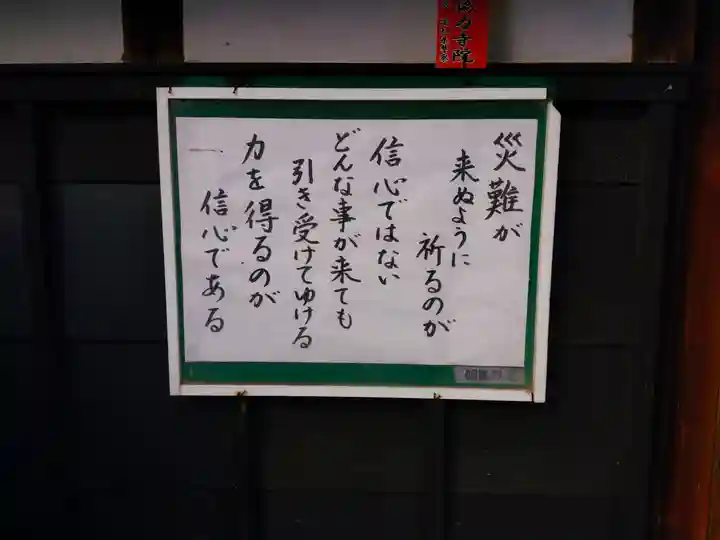 災難が
来ぬように
祈るのが
信心ではない
どんな事が来ても
引き受けてゆける
力を得るのが
信心である
一